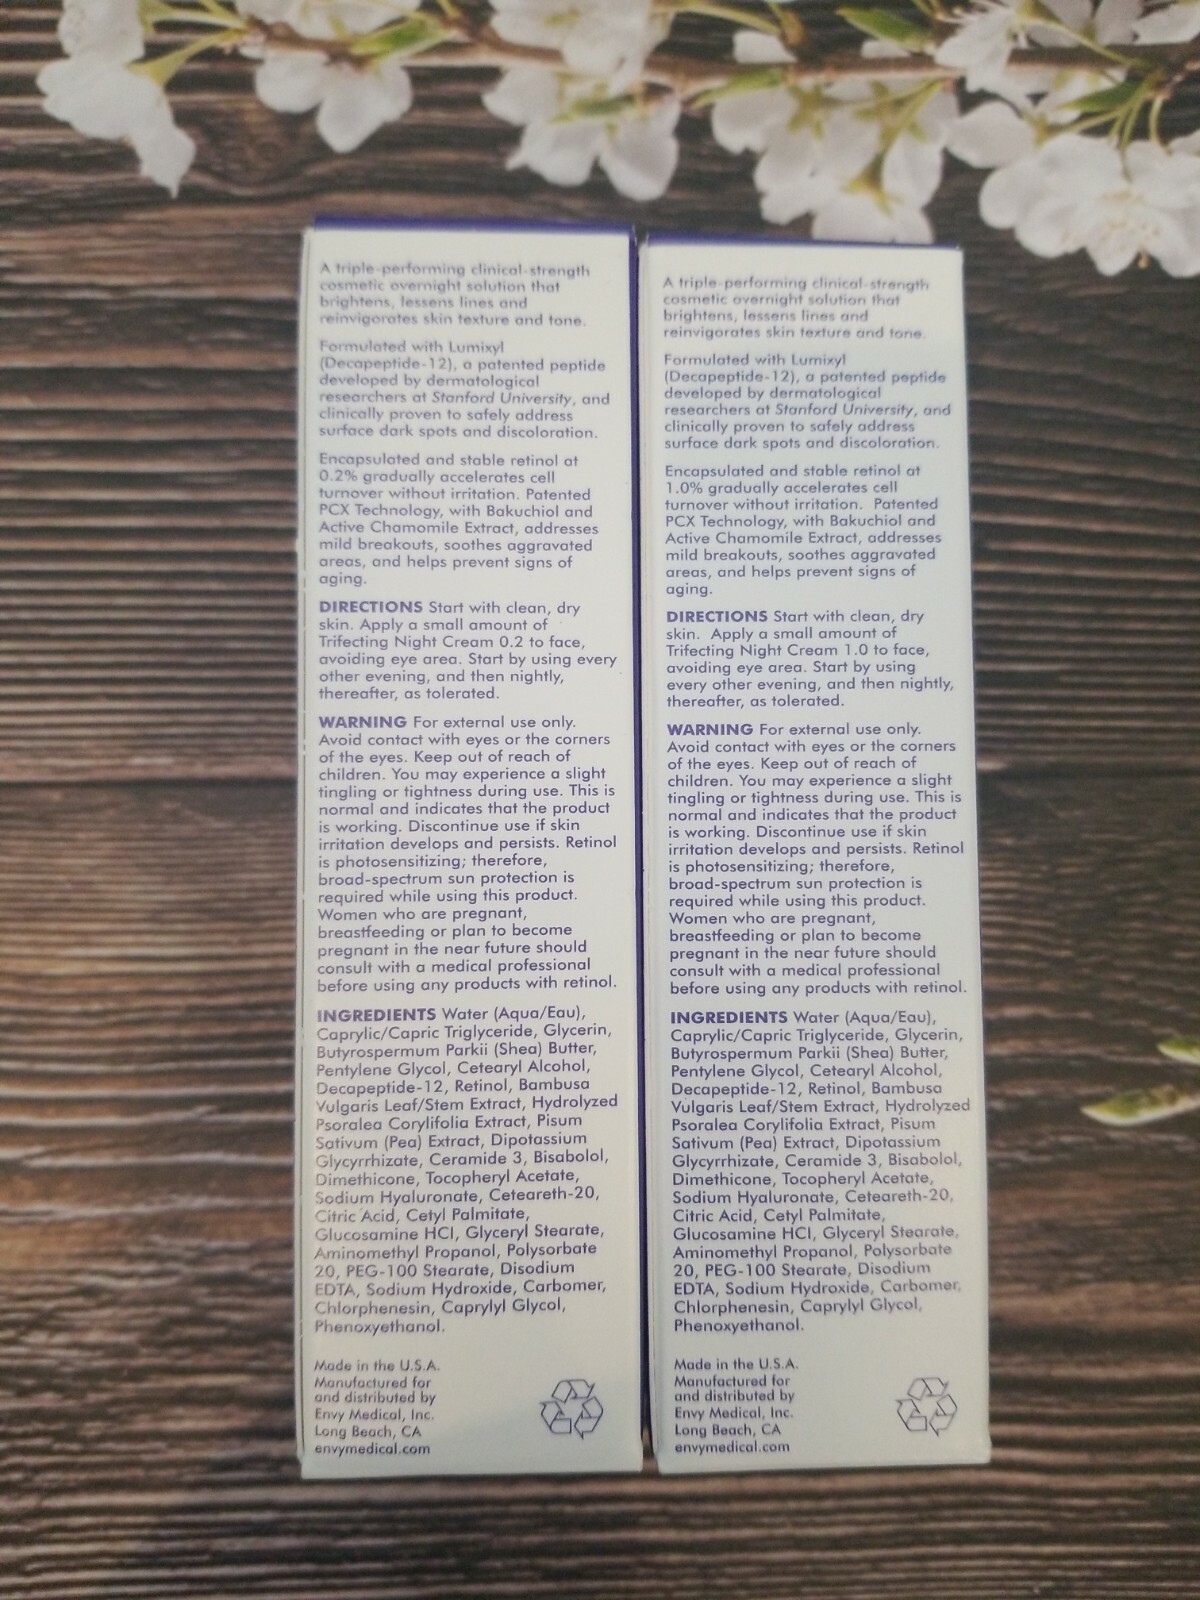 A triple-performing clinical-strength
cosmetic overnight solution that
brightens, lessens lines and
reinvigorates skin texture and tone.
Formulated with Lumixyl
(Decapeptide-12), a patented peptide
developed by dermatological
researchers at Stanford University, and
clinically proven to safely address
surface dark spots and discoloration.
Encapsulated and stable retinol at
0.2% gradually accelerates cell
turnover without irritation. Patented
PCX Technology, with Bakuchiol and
Active Chamomile Extract, addresses
mild breakouts, soothes aggravated
areas, and helps prevent signs of
aging.
DIRECTIONS Start with clean, dry
skin. Apply a small amount of
Trifecting Night Cream 0.2 to face,
avoiding eye area. Start by using every
other evening, and then nightly,
thereafter, as tolerated.
WARNING For external use only.
Avoid contact with eyes or the corners
of the eyes. Keep out of reach of
children. You may experience a slight
tingling or tightness during use. This is
normal and indicates that the product
is working. Discontinue use if skin
irritation develops and persists. Retinol
is photosensitizing; therefore,
broad-spectrum sun protection is
required while using this product.
Women who are pregnant,
breastfeeding or plan to become
pregnant in the near future should
consult with a medical professional
before using any products with retinol.
INGREDIENTS Water (Aqua/Eau),
Caprylic/Capric Triglyceride, Glycerin,
Butyrospermum Parkii (Shea) Butter,
Pentylene Glycol, Cetearyl Alcohol,
Decapeptide-12, Retinol, Bambusa
Vulgaris Leaf/Stem Extract, Hydrolyzed
Psoralea Corylifolia Extract, Pisum
Sativum (Pea) Extract, Dipotassium
Glycyrrhizate, Ceramide 3, Bisabolol,
Dimethicone, Tocopheryl Acetate,
Sodium Hyaluronate, Ceteareth-20,
Citric Acid, Cetyl Palmitate,
Glucosamine HCl, Glyceryl Stearate,
Aminomethyl Propanol, Polysorbate
20, PEG-100 Stearate, Disodium
EDTA, Sodium Hydroxide, Carbomer,
Chlorphenesin, Caprylyl Glycol,
Phenoxyethanol.
Made in the U.S.A.
Manufactured for
and distributed by
Envy Medical, Inc.
Long Beach, CA
envymedical.com
A triple-performing clinical-strength
cosmetic overnight solution that
brightens, lessens lines and
reinvigorates skin texture and tone.
Formulated with Lumixyl
(Decapeptide-12), a patented peptide
developed by dermatological
researchers at Stanford University, and
clinically proven to safely address
surface dark spots and discoloration.
Encapsulated and stable retinol at
1.0% gradually accelerates cell
turnover without irritation. Patented
PCX Technology, with Bakuchiol and
Active Chamomile Extract, addresses
mild breakouts, soothes aggravated
areas, and helps prevent signs of
aging.
DIRECTIONS Start with clean, dry
skin. Apply a small amount of
Trifecting Night Cream 1.0 to face,
avoiding eye area. Start by using
every other evening, and then nightly,
thereafter, as tolerated.
WARNING For external use only.
Avoid contact with eyes or the corners
of the eyes. Keep out of reach of
children. You may experience a slight
tingling or tightness during use. This is
normal and indicates that the product
is working. Discontinue use if skin
irritation develops and persists. Retinol
is photosensitizing; therefore,
broad-spectrum sun protection is
required while using this product.
Women who are pregnant,
breastfeeding or plan to become
pregnant in the near future should
consult with a medical professional
before using any products with retinol.
INGREDIENTS Water (Aqua/Eau),
Caprylic/Capric Triglyceride, Glycerin,
Butyrospermum Parkii (Shea) Butter,
Pentylene Glycol, Cetearyl Alcohol,
Decapeptide-12, Retinol, Bambusa
Vulgaris Leaf/Stem Extract, Hydrolyzed
Psoralea Corylifolia Extract, Pisum
Sativum (Pea) Extract, Dipotassium
Glycyrrhizate, Ceramide 3, Bisabolol,
Dimethicone, Tocopheryl Acetate,
Sodium Hyaluronate, Ceteareth-20,
Citric Acid, Cetyl Palmitate,
Glucosamine HCl, Glyceryl Stearate,
Aminomethyl Propanol, Polysorbate
20, PEG-100 Stearate, Disodium
EDTA, Sodium Hydroxide, Carbomer,
Chlorphenesin, Caprylyl Glycol,
Phenoxyethanol.
Made in the U.S.A.
Manufactured for
and distributed by
Envy Medical, Inc.
Long Beach, CA
envymedical.com